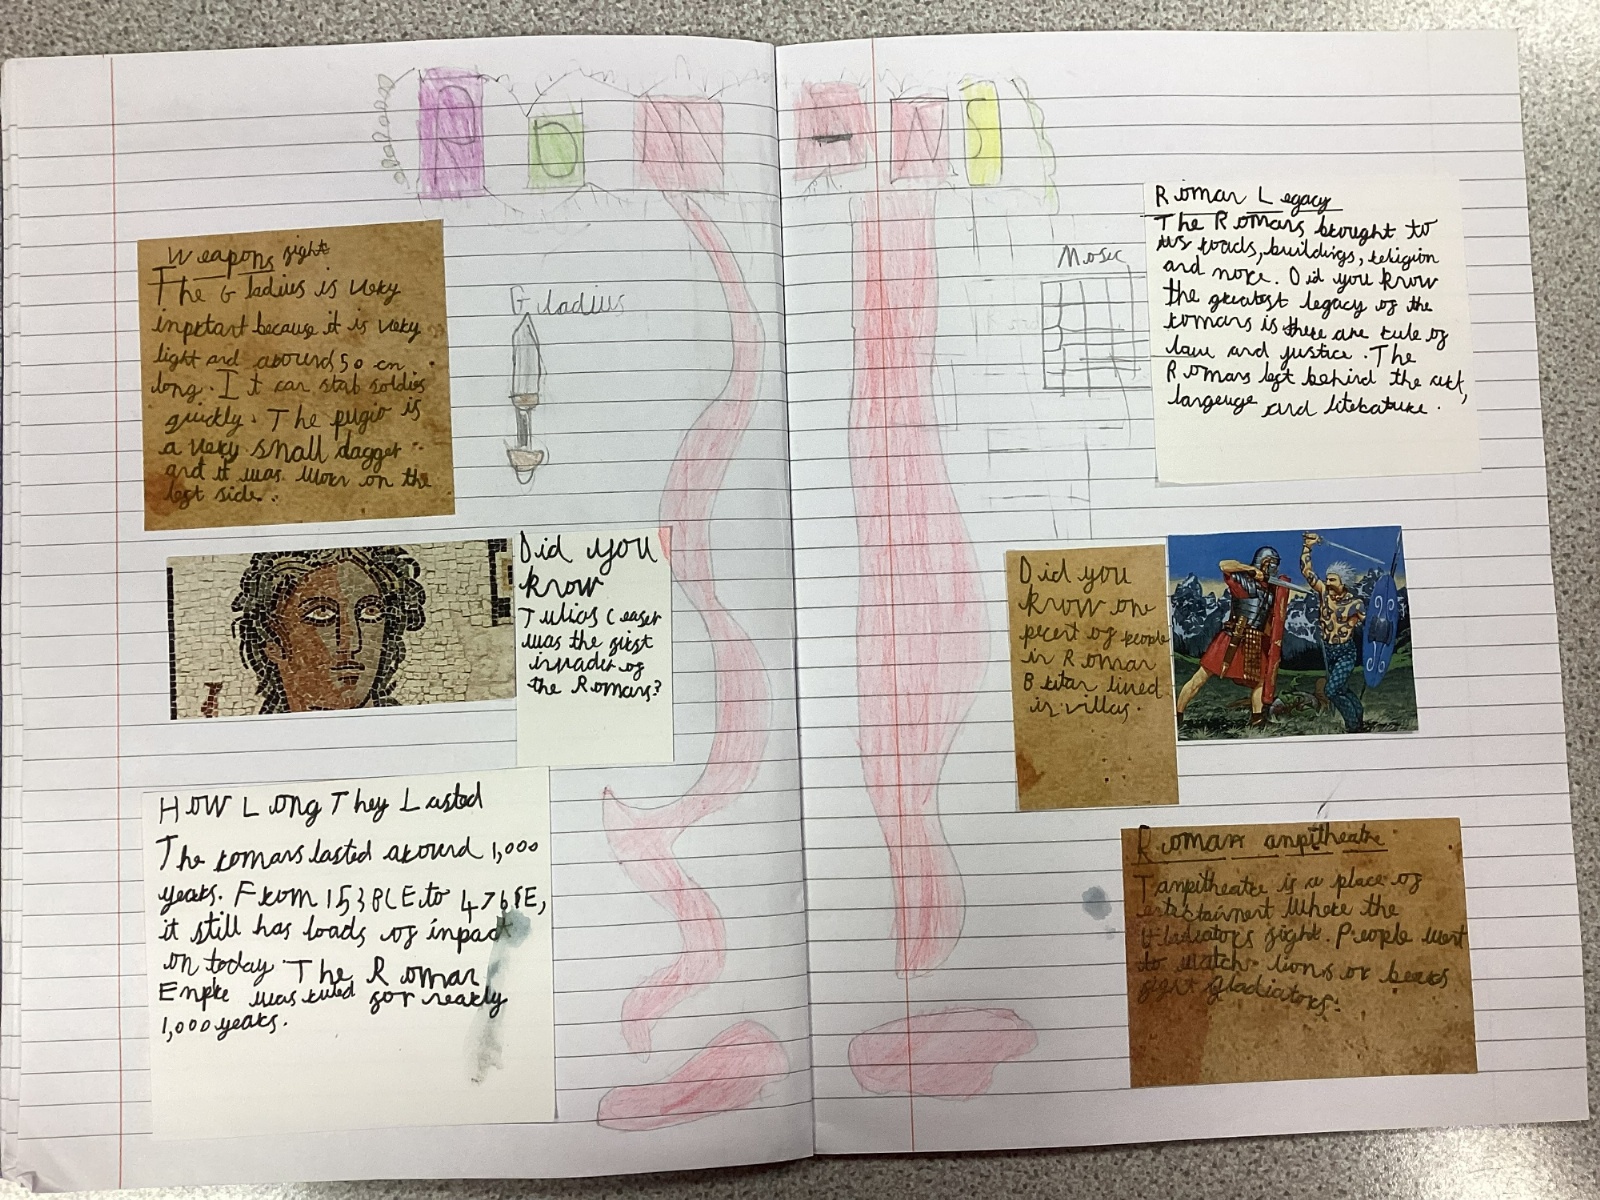 ROMANS
Weapons fight
The Gladius is very
inprtant because it is very
light and around 50 cm
long. It can stab soldies
quickly. The pugio is
a very small dagger
and it was worn on the
left side.
Gladius
Did you
know
Julios Ceaser
was the first
invader of
the Romans?
How Long They Lasted
The romans lasted around 1,000
years. From 153 BCE to 476 BE,
it still has loads of inpact
on today The Roman
Enpire was ruled for nearly
1,000 years.
Mosic
Roman Legacy
The Romans brought to
us roads, buildings, religion
and more. Did you know
the greatest legacy of the
romans is there are rule of
law and justice. The
Romans left behind the art,
languge and literature.
Did you
know one
pecert of people
in Roman
Britan lived
in villas.
Roman anpitheatre
T anpitheatre is a place of
entertainment Where the
Gladiators fight. People went
to watch lions or bears
fight gladiators.